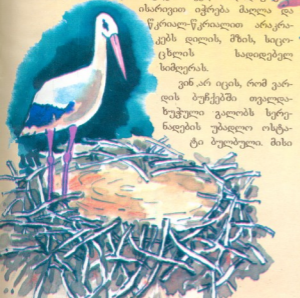 ისარივით იჭრება მაღლა და
წკრიალ-წკრიალით არაკრა-
კებს დილის, მზის, სიცო-
ცხლის სადიდებელ
სიმღერას.
ვინ არ იცის, რომ ვარ-
დის ბუჩქებში თვალდა-
ხუჭული გალობს სერე-
ნადების უბადლო ოსტა-
ტი ბულბული. მისი